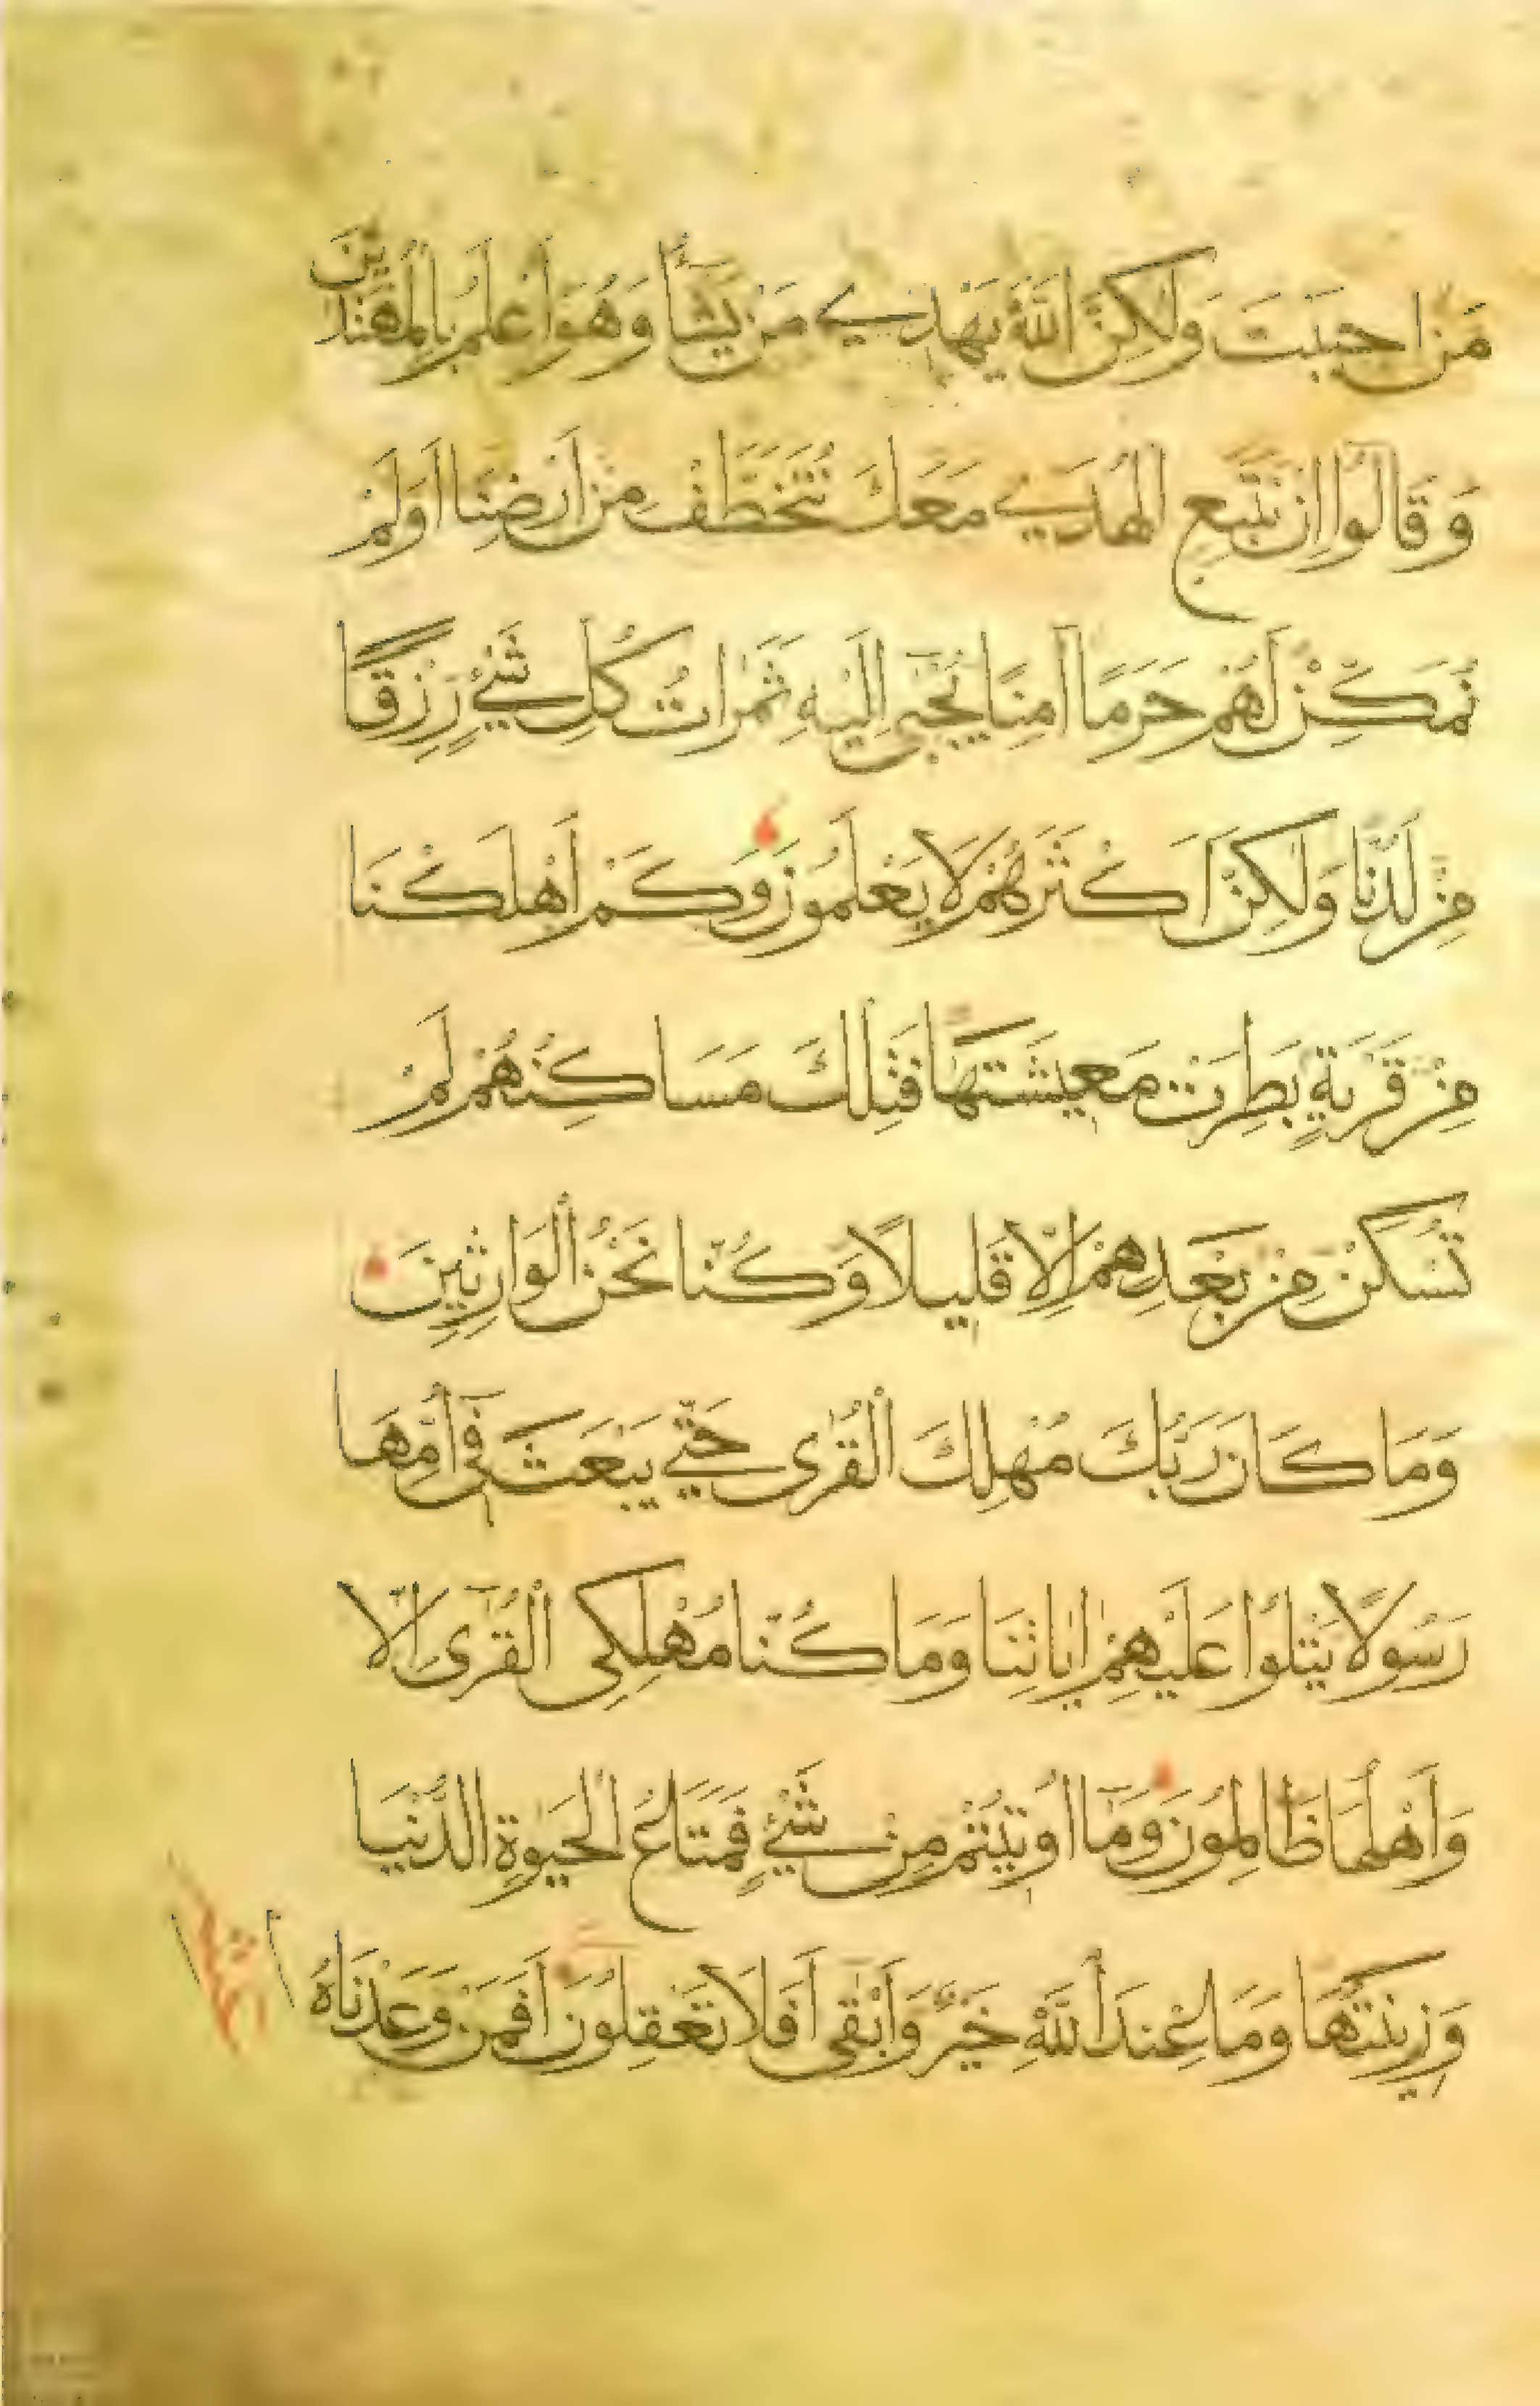 مَنْ احببَتَ وَلٰكِنَّ اللَّهَ يَهْدِي مَنْ يَشَاءُ وَهُوَ اَعْلَمُ بِالْمُهْتَدِينَ
وَقَالُوا اِنْ نَتَّبِعِ الْهُدَي مَعَكَ نُتَخَطَّفْ مِنْ اَرْضِنَا اَوَلَمْ
نُمَكِّنْ لَهُمْ حَرَمًا اٰمِنًا يُجْبٰى اِلَيْهِ ثَمَرَاتُ كُلِّ شَيْءٍ رِزْقًا
مِنْ لَدُنَّا وَلٰكِنَّ اَكْثَرَهُمْ لَا يَعْلَمُونَ وَكَمْ اَهْلَكْنَا
مِنْ قَرْيَةٍ بَطِرَتْ مَعِيشَتَهَا فَتِلْكَ مَسَاكِنُهُمْ لَمْ
تُسْكَنْ مِنْ بَعْدِهِمْ اِلَّا قَلِيلًا وَكُنَّا نَحْنُ الْوَارِثِينَ
وَمَا كَانَ رَبُّكَ مُهْلِكَ الْقُرٰى حَتّٰي يَبْعَثَ فِى اُمِّهَا
رَسُولًا يَتْلُوا عَلَيْهِمْ اٰيَاتِنَا وَمَا كُنَّا مُهْلِكِى الْقُرٰى اِلَّا
وَاَهْلُهَا ظَالِمُونَ وَمَا اُوتِيتُمْ مِنْ شَيْءٍ فَمَتَاعُ الْحَيٰوةِ الدُّنْيَا
وَزِينَتُهَا وَمَا عِنْدَ اللَّهِ خَيْرٌ وَاَبْقٰى اَفَلَا تَعْقِلُونَ اَفَمَنْ وَعَدْنَاهُ